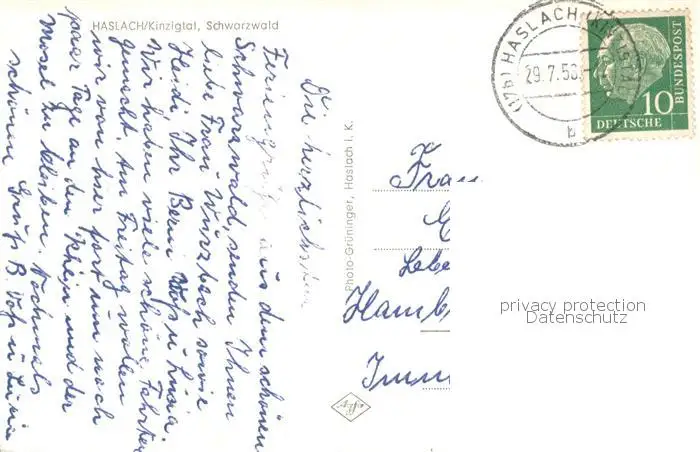 HASLACH/Kinzigtal, Schwarzwald
Die herzlichsten
Feriengrüße aus dem schönen
Schwarzwald, senden Ihnen
liebe Frau Würzbach sowie
Heidi, Ihr Berni Voß u Luzia.
Wir haben viele schöne Fahrten
gemacht. Am Freitag wollen
wir von hier fort um noch
paar Tage an den Rhein und der
Mosel zu bleiben. Nochmals
schönen Gruß B. Voß u Luzia
Photo-Grüninger, Haslach i. K.
(17b) HASLACH (KINZIGTAL)
29.7.58.
b
10
DEUTSCHE
BUNDESPOST
Frau
Hamb
privacy protection
Datenschutz